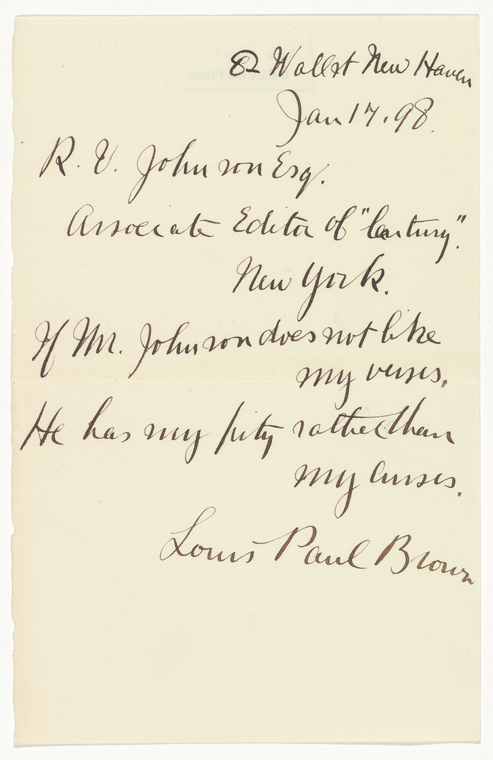 82 Wall st New Haven
Jan 17. 98.
R. U. Johnson Esq.
Associate Editor of "Century".
New York.
If Mr. Johnson does not like
my verses,
He has my pity rather than
my curses.
Louis Paul Brown